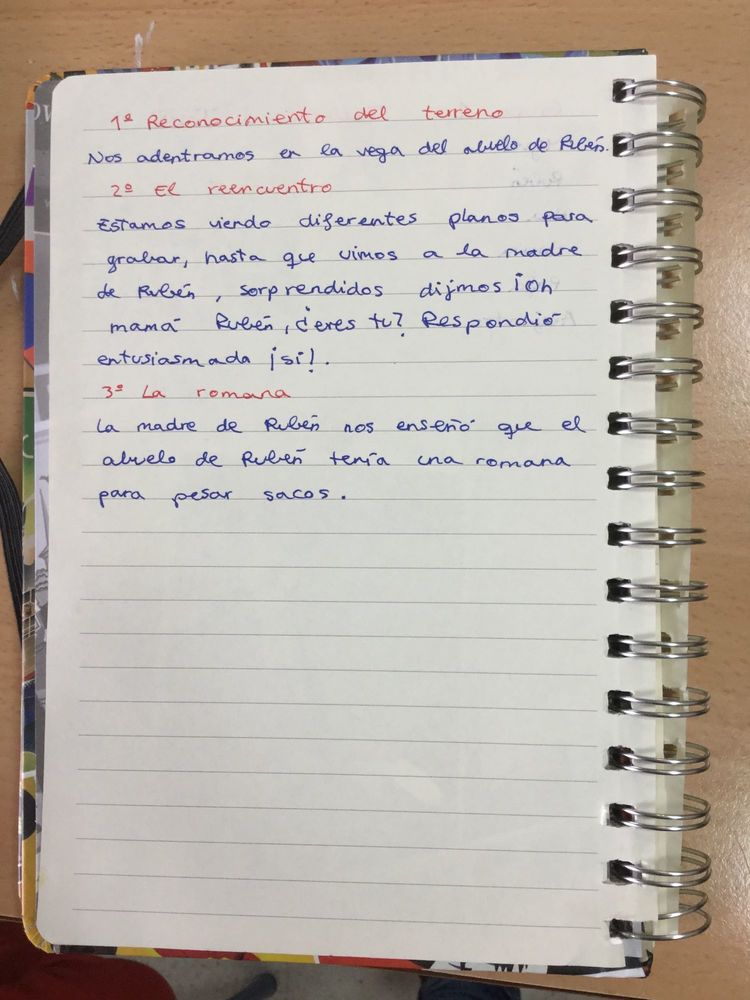 1º Reconocimiento del terreno
Nos adentramos en la vega del abuelo de Rubén.
2º El reencuentro
Estamos viendo diferentes planos para
grabar, hasta que vimos a la madre
de Rubén, sorprendidos dijmos ¡Oh
mamá Rubén, ¿eres tu? Respondió
entusiasmada ¡si!.
3º La romana
La madre de Rubén nos enseñó que el
abuelo de Rubén tenía una romana
para pesar sacos.